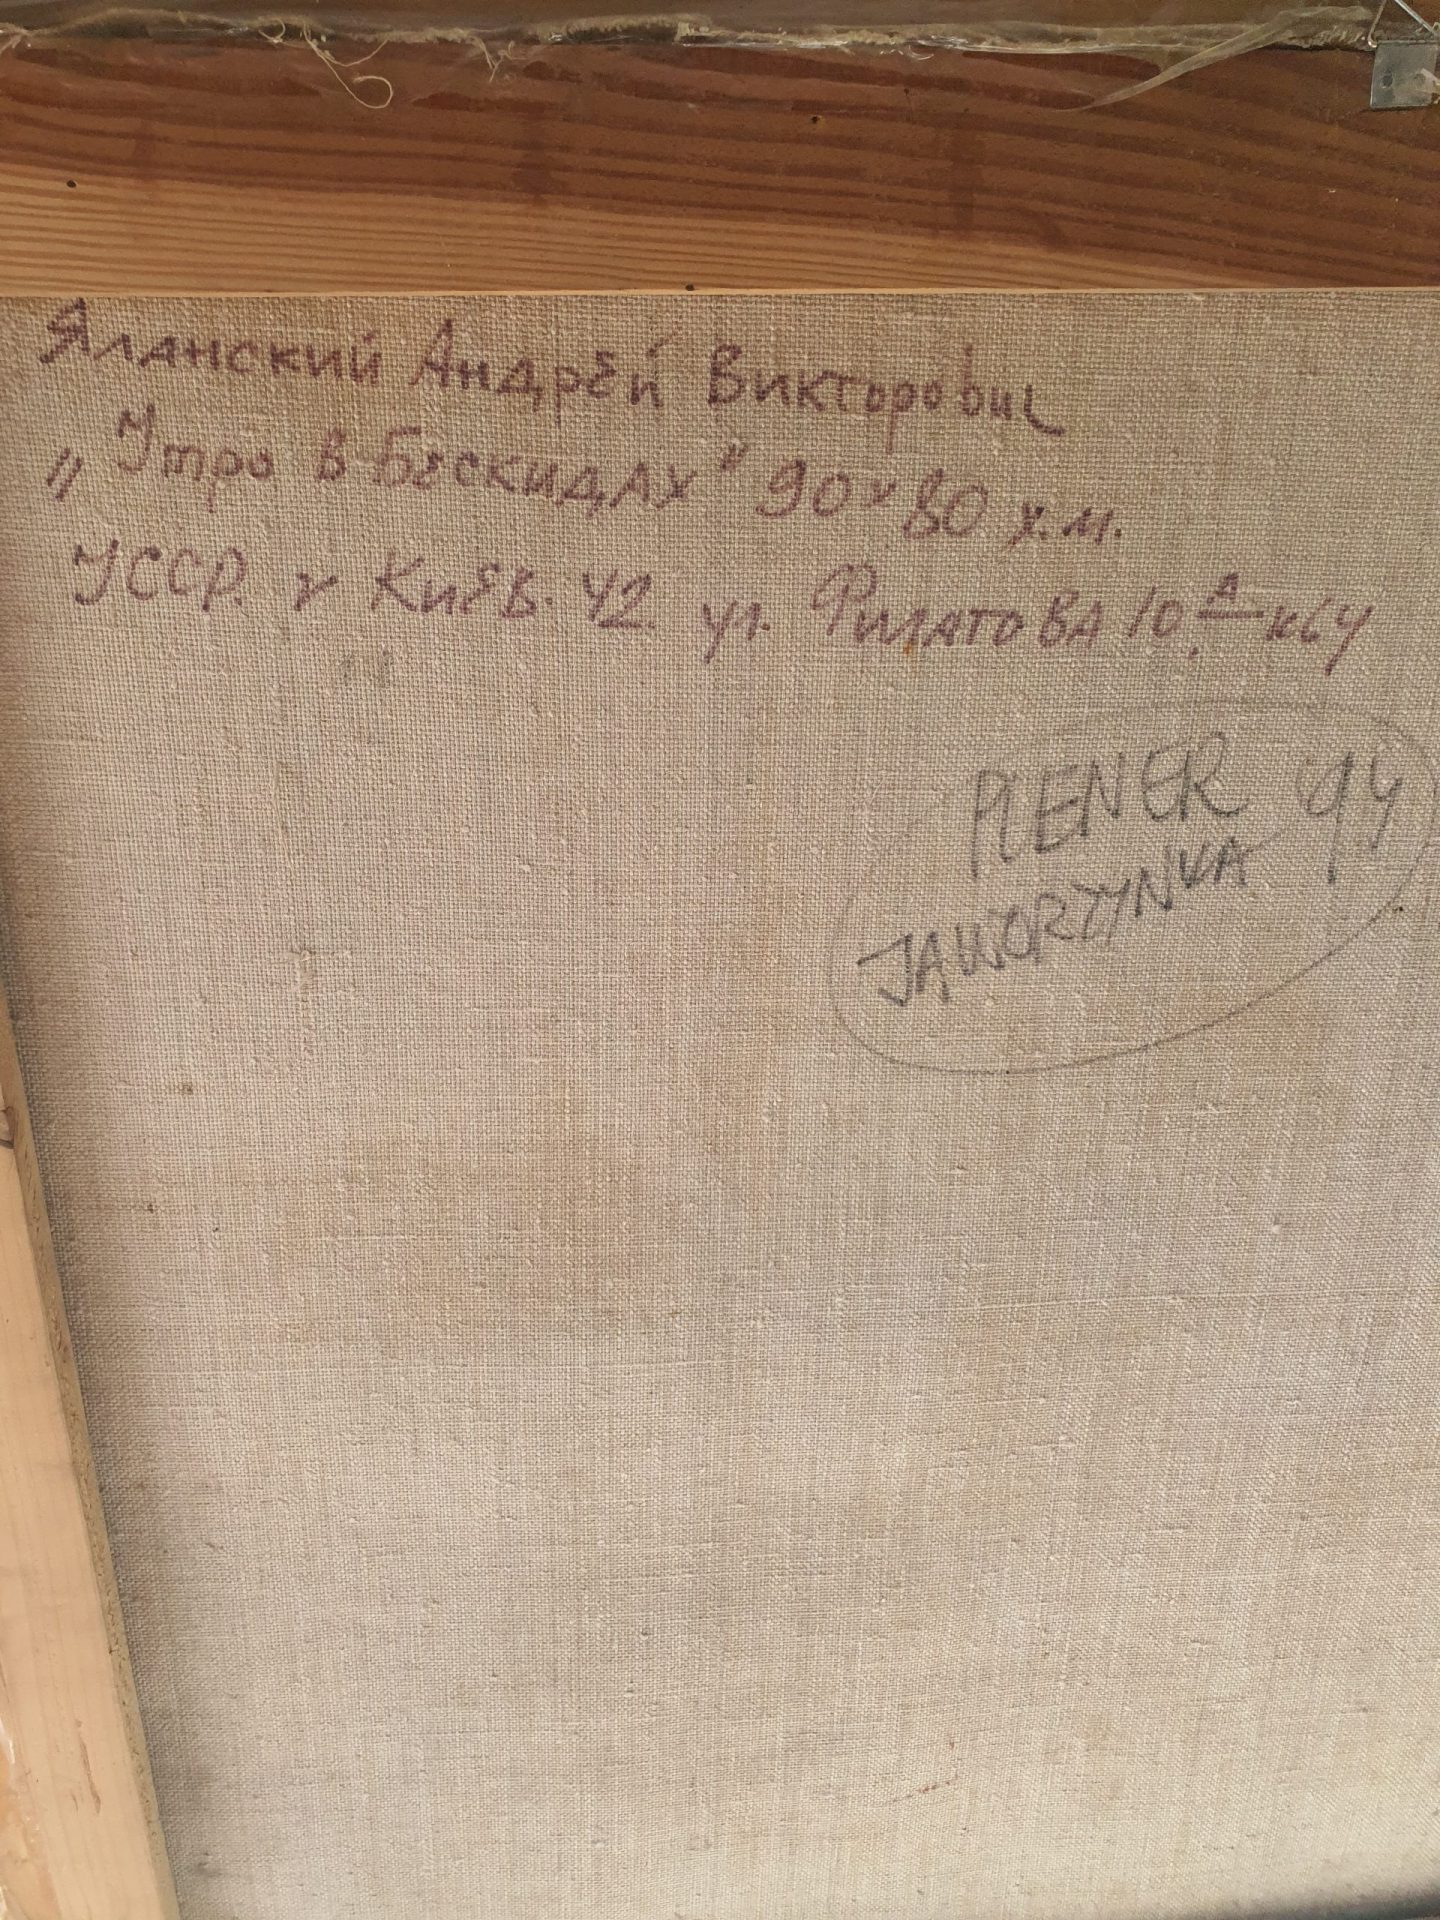 Яланский Андрей Викторович
„Утро в Бескидах" 90х80 х.м.
УССР. г Киев. 42. ул. Филатова 10. А к64
PLENER '94
JAWORZYNKA